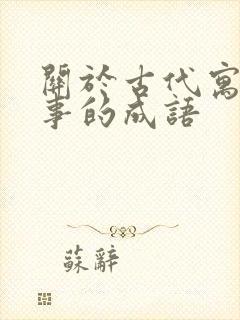 關於古代寓
事的成語
蘇辭